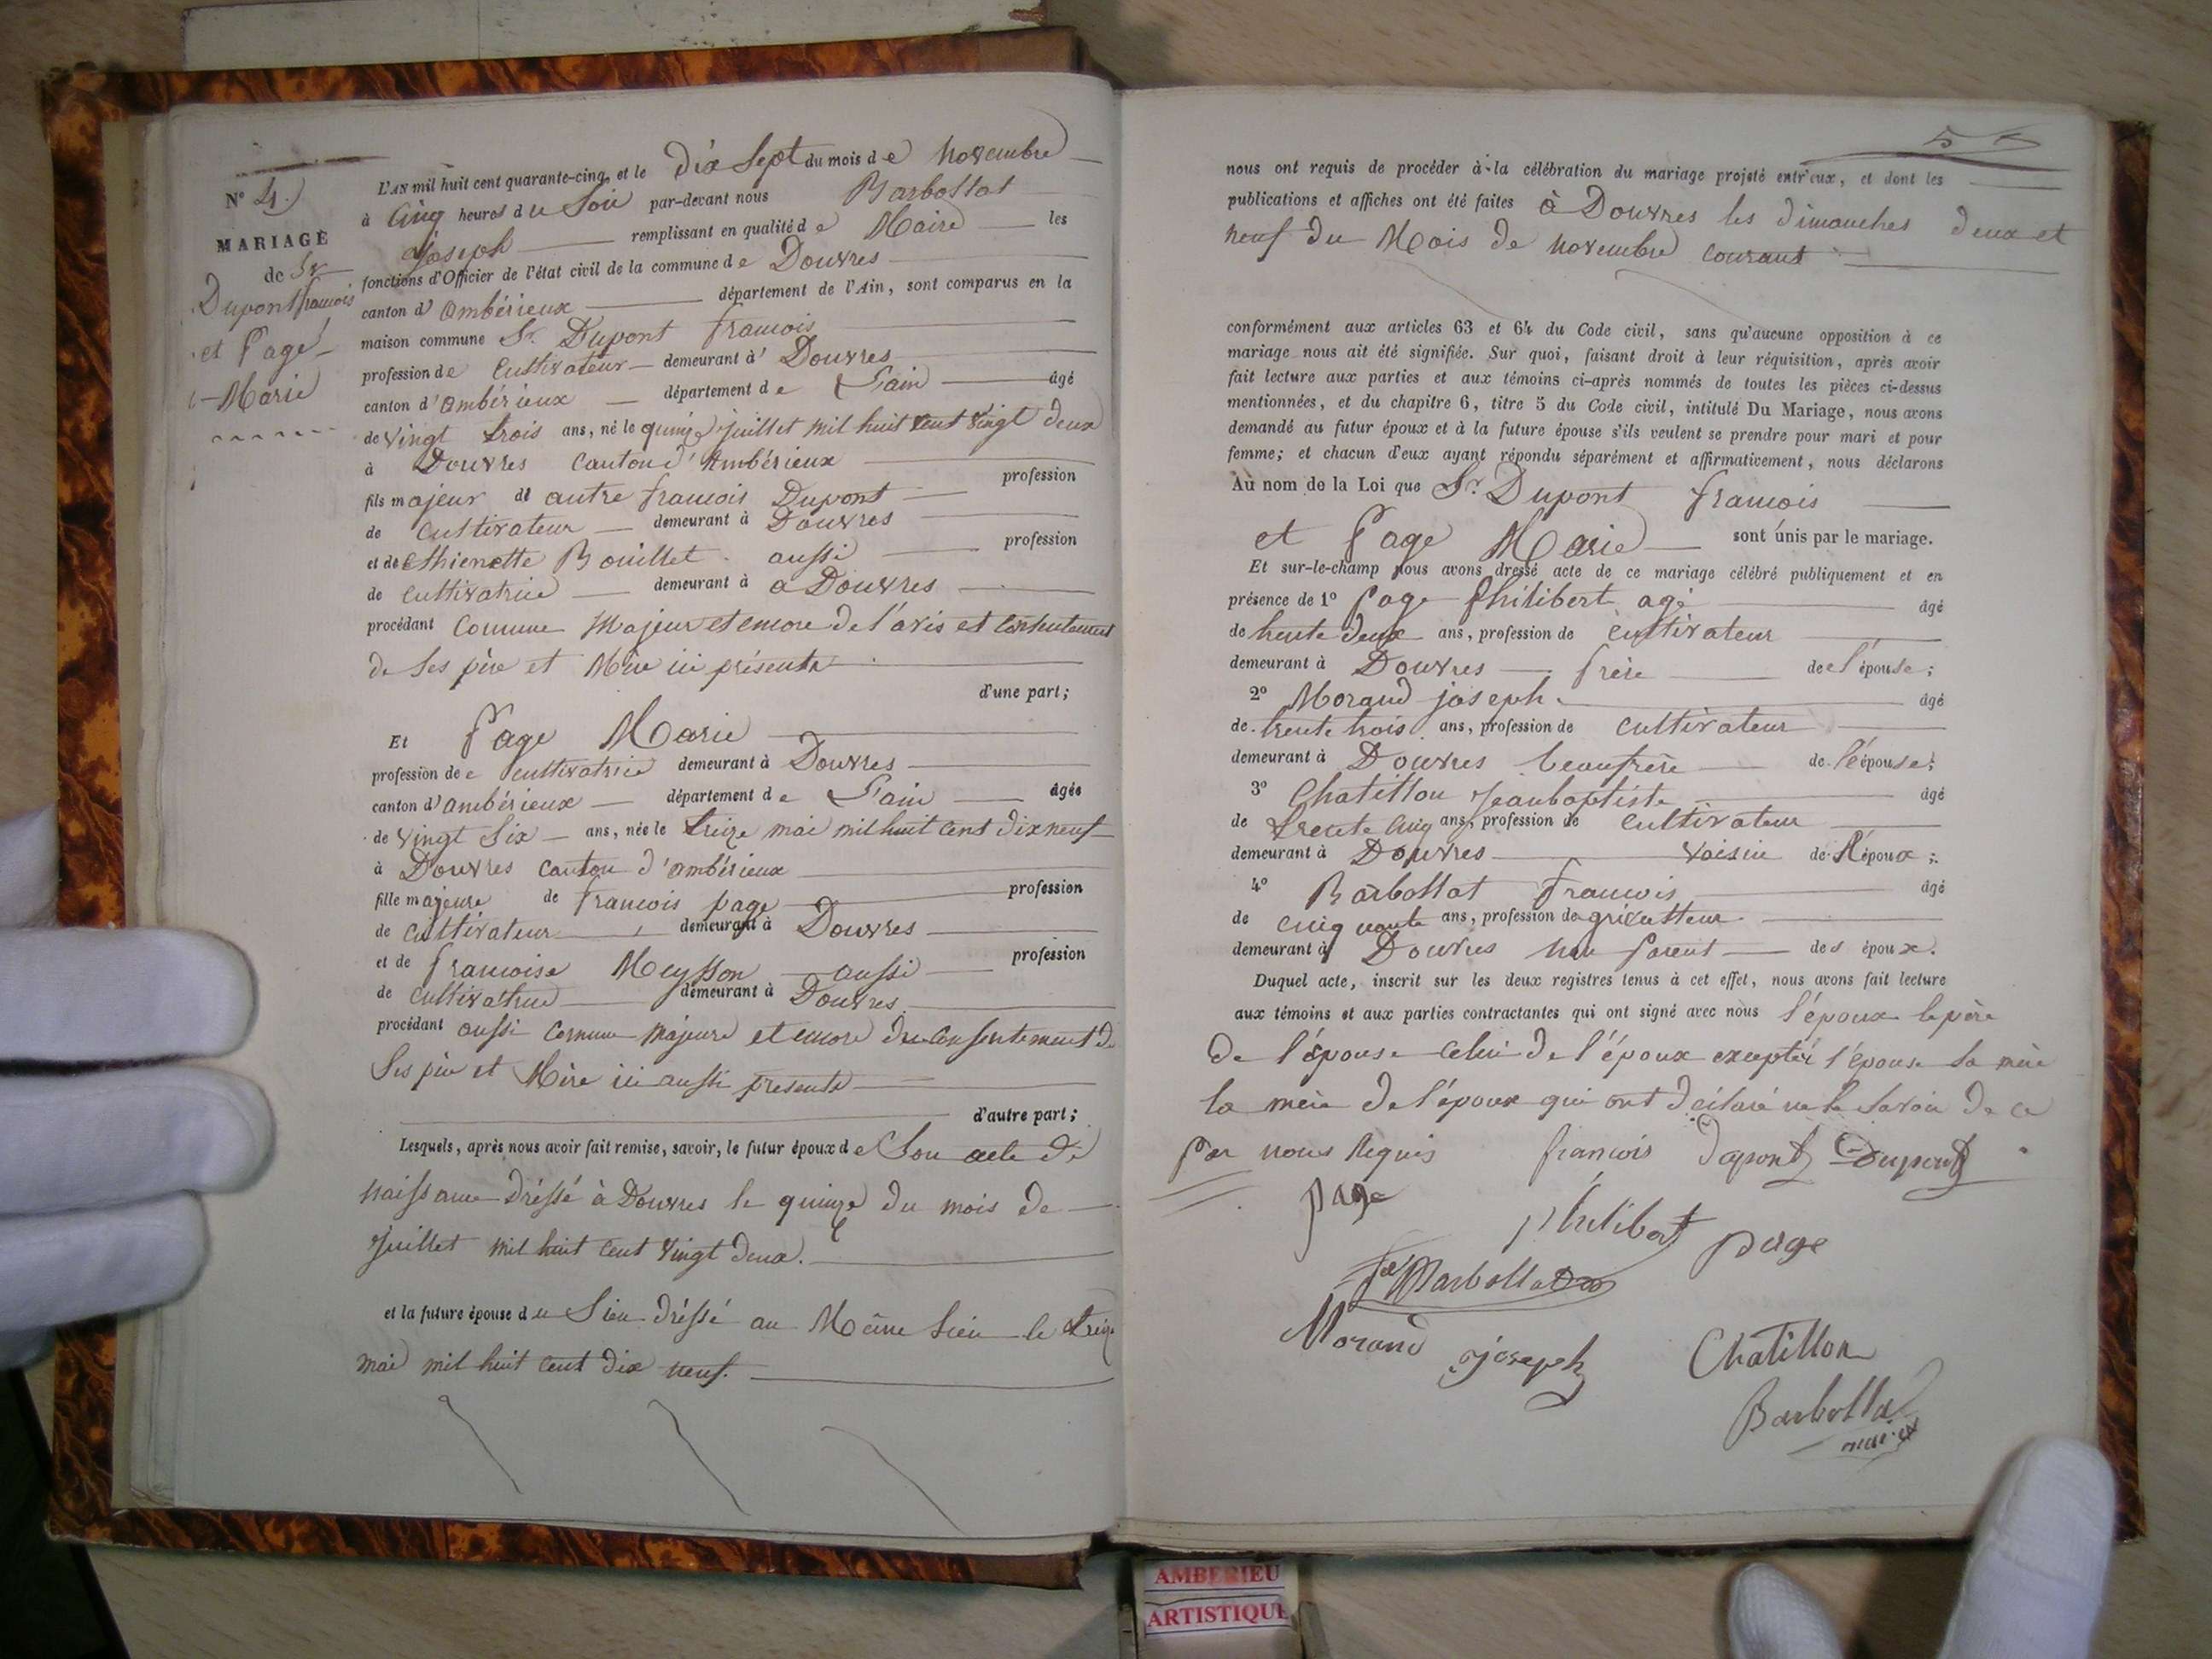 N° 4.
MARIAGE
de Sr
Dupont francois
et Page
Marie
L'AN mil huit cent quarante-cinq, et le Dix Sept du mois de Novembre
à Cinq heures du Soir par-devant nous Barbollat
Joseph remplissant en qualité de Maire les
fonctions d'Officier de l'état civil de la commune de Douvres
canton d'Ambérieux département de l'Ain, sont comparus en la
maison commune Sr. Dupont francois
profession de Cultivateur demeurant à Douvres
canton d'ambérieux département de L'ain âgé
de Vingt trois ans, né le quinze juillet mil huit cent vingt deux
à Douvres Canton d'Ambérieux
fils majeur de autre francois Dupont profession
de Cultivateur demeurant à Douvres
et de Ethienette Bouillet aussi profession
de Cultivatrice demeurant à a Douvres
procédant Comme Majeur et encore de l'avis et Consentement
de Ses père et Mère ici présents
d'une part;
Et Page Marie
profession de e cultivatrice demeurant à Douvres
canton d'ambérieux département de L'ain âgée
de vingt Six ans, née le treize mai mil huit cent dix neuf
à Douvres Canton d'ambérieux
fille majeure de francois page profession
de Cultivateur demeurant à Douvres
et de francoise Meysson aussi profession
de cultivatrice demeurant à Douvres
procédant aussi Comme Majeure et encore du Consentement de
Ses père et Mère ici aussi presents
d'autre part;
Lesquels, après nous avoir fait remise, savoir, le futur époux de Son acte de
naissance Dréssé à Douvres le quinze du mois de
Juillet mil huit cent vingt deux.
et la future épouse du Sien dréssé au Même lieu le treize
mai mil huit cent dix neuf.
5
nous ont requis de procéder à la célébration du mariage projeté entr'eux, et dont les
publications et affiches ont été faites à Douvres les dimanches deux et
neuf du Mois de novembre courant
conformément aux articles 63 et 64 du Code civil, sans qu'aucune opposition à ce
mariage nous ait été signifiée. Sur quoi, faisant droit à leur réquisition, après avoir
fait lecture aux parties et aux témoins ci-après nommés de toutes les pièces ci-dessus
mentionnées, et du chapitre 6, titre 5 du Code civil, intitulé Du Mariage, nous avons
demandé au futur époux et à la future épouse s'ils veulent se prendre pour mari et pour
femme; et chacun d'eux ayant répondu séparément et affirmativement, nous déclarons
Au nom de la Loi que Sr. Dupont francois
et Page Marie sont unis par le mariage.
Et sur-le-champ nous avons dressé acte de ce mariage célébré publiquement et en
présence de 1° Page Philibert agé âgé
de trente deux ans, profession de cultivateur
demeurant à Douvres frère de el'épouse;
2° Morand joseph. âgé
de trente trois ans, profession de cultivateur
demeurant à Douvres beaufrère de l'épouse;
3° Chatillon Jeanbaptiste âgé
de trente cinq ans, profession de cultivateur
demeurant à Douvres Voisin de l'époux;
4° Barbollat francois âgé
de cinquante ans, profession de agriculteur
demeurant à Douvres non parent des époux.
Duquel acte, inscrit sur les deux registres tenus à cet effet, nous avons fait lecture
aux témoins et aux parties contractantes qui ont signé avec nous l'époux le père
de l'épouse celui de l'époux exceptér l'épouse sa mère
la mère de l'époux qui ont déclaré ne le savoir de ce
par nous Requis francois Dupont Dupont
page
philibert page
Barbollat
Morand joseph
Chatillon
Barbollat
maire
AMBERIEU
ARTISTIQUE